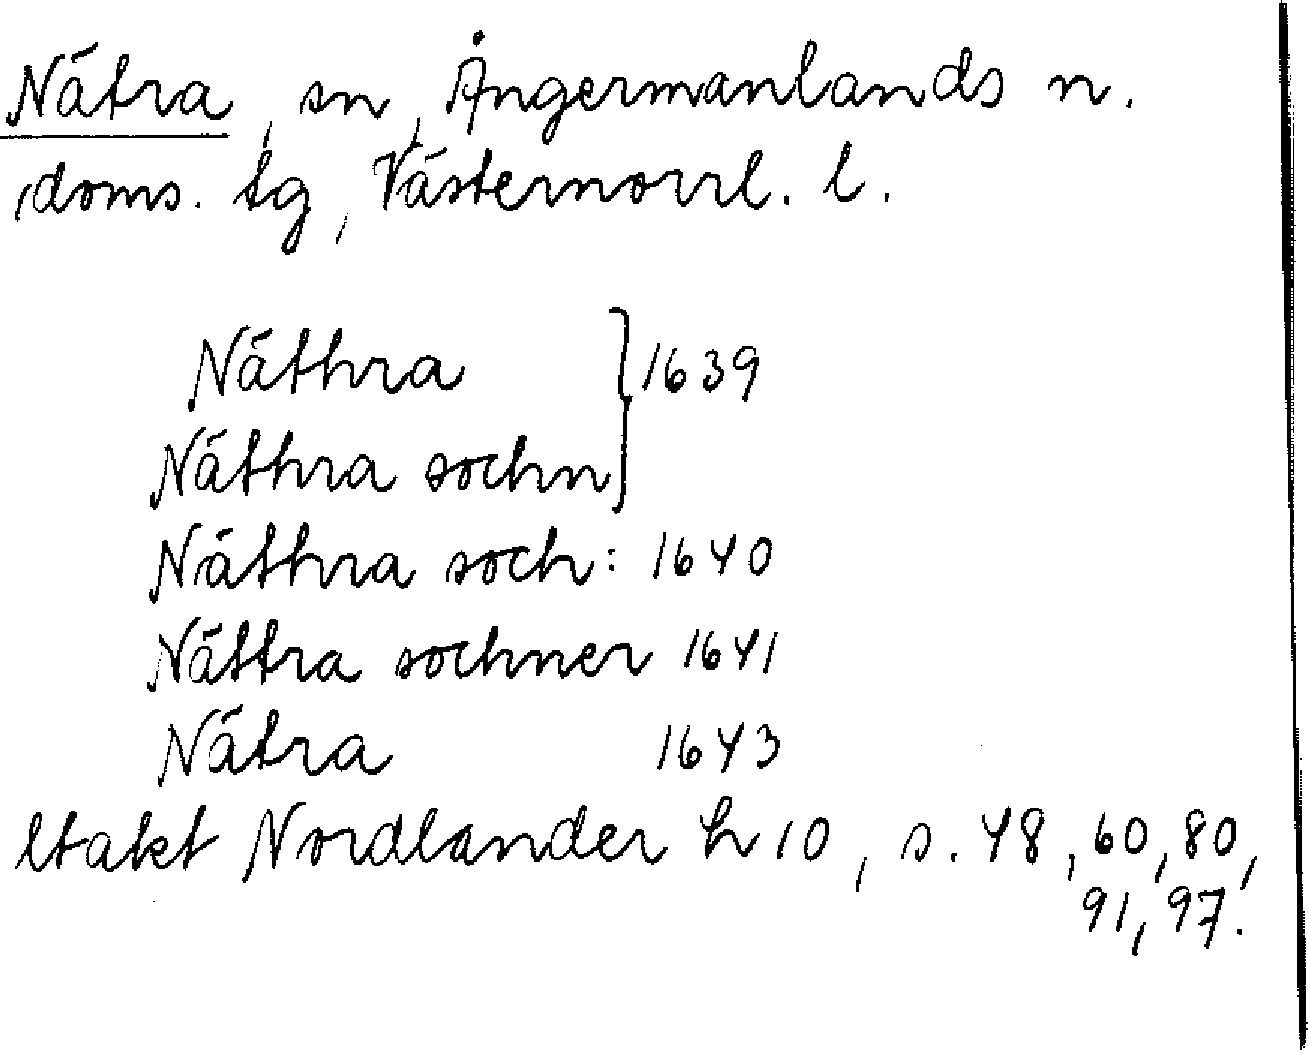 Nätra, sn, Ångermanlands n.
doms. tg, Västernorrl. l.
Näthra } 1639
Näthra sochn
Näthra soch: 1640
Nättra sochner 1641
Nätra 1643
ltakt Nordlander h 10, s. 48, 60, 80,
91, 97.